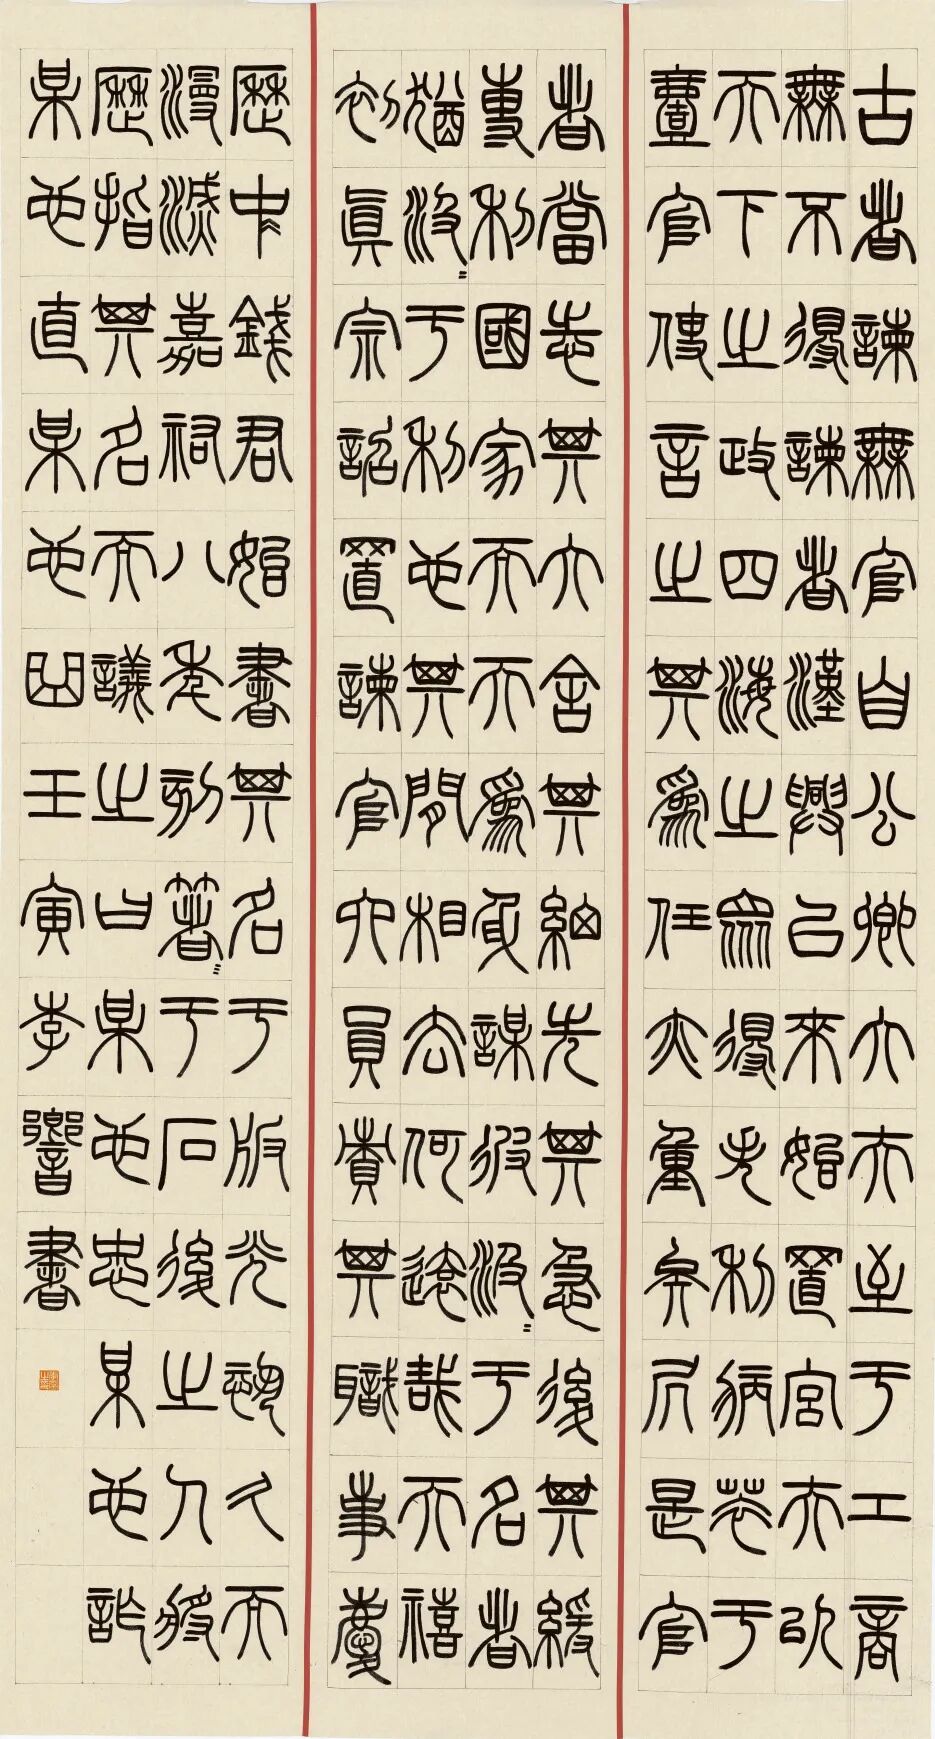 古者諫無官自公卿大夫至于工商
無不得諫者漢興已來始置官夫以
天下之政四海之眾得失利病萃于
壹官使言之其為任亦重矣居是官
者當志其大舍其細先其急後其緩
專利國家而不為身謀彼汲〻于名者
猶汲〻于利也其間相去何遠哉天禧
初真宗詔置諫官六員責其職事慶
歷中錢君始書其名于版光恐久而
漫滅嘉祐八年刻著〻于石後之人將
歷指其名而議之曰某也忠某也詐
某也直某也曲壬寅李響書